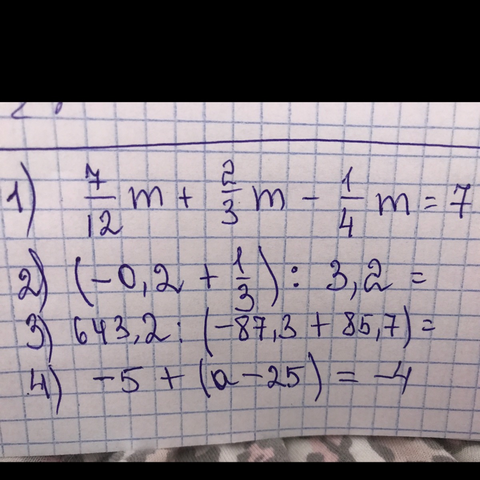 1) 7/12 m + 2/3 m - 1/4 m = 7
2) (-0,2 + 1/3) : 3,2 =
3) 643,2 : (-87,3 + 85,7) =
4) -5 + (a - 25) = -4